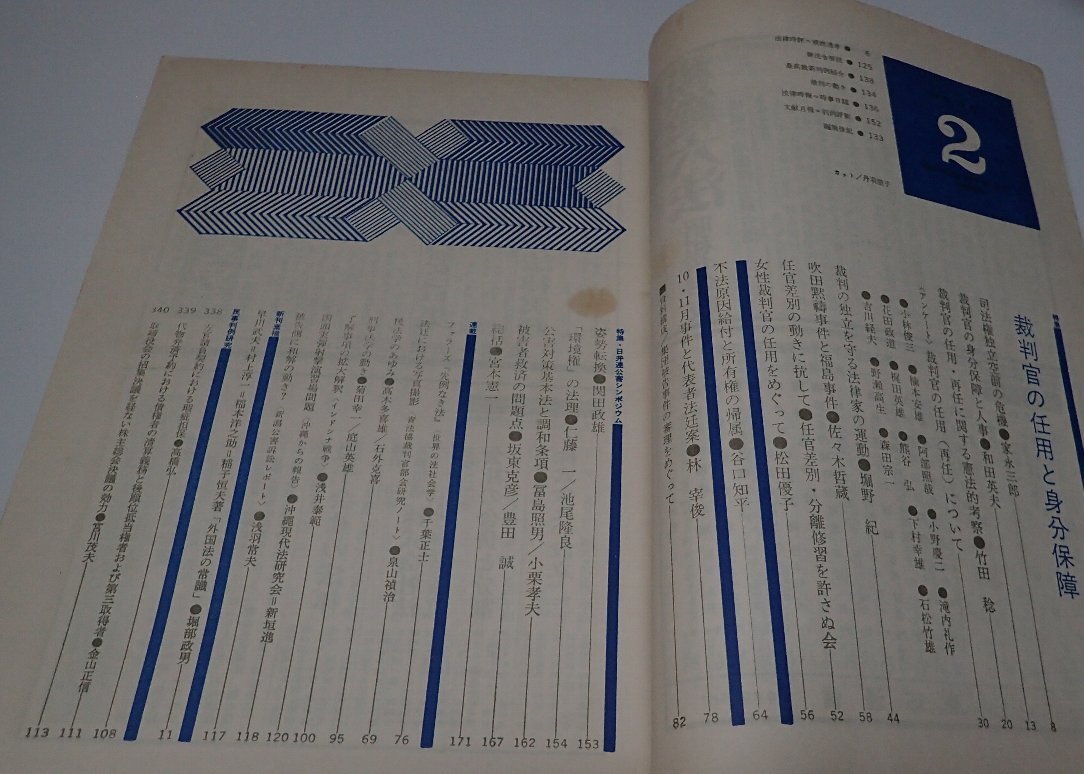 2
法律時評＝
● 6
● 125
● 138
● 134
法律時報＝時事日誌 ● 136
文献月報＝判例評釈 ● 152
編集後記 ● 133
カット／丹羽
特集
裁判官の任用と身分保障
司法権独立空前の危機●家永三郎 8
裁判官の身分保障と人事●和田英夫 13
裁判官の任用・再任に関する憲法的考察●竹田 稔 20
〈アンケート〉裁判官の任用（再任）について 30
●小林俊三 ●楠本安雄 ●阿部照哉 ●小野慶二 ●滝内礼作
●花田政道 ●梶田英雄 ●熊谷 弘 ●下村幸雄 ●石松竹雄
●吉川経夫 ●野瀬高生 ●森田宗一
裁判の独立を守る法律家の運動●堀野 紀 44
吹田黙祷事件と福島事件●佐々木哲蔵 58
任官差別の動きに抗して●任官差別・分離修習を許さぬ会 52
女性裁判官の任用をめぐって●松田優子 56
不法原因給付と所有権の帰属●谷口知平 64
10・11月事件と代表者法廷案●林 宰俊 78
集団被告事件の審理をめぐって 82
特集・日弁連公害シンポジウム
姿勢転換●関田政雄 153
「環境権」の法理●仁藤 一／池尾隆良 154
公害対策基本法と調和条項●冨島照男／小栗孝夫 162
被害者救済の問題点●坂東克彦／豊田 誠 167
総括●宮本憲一 171
連載
フェラーズ『先例なき法』〈世界の法社会学〉●千葉正士 76
法廷における写真撮影〈青法協裁判官部会研究ノート〉●泉山禎治 69
民法学のあゆみ●高木多喜雄／石外克喜 95
刑事法学の動き●菊田幸一／庭山英雄 100
了解事項の拡大解釈〈インドシナ戦争〉●浅井泰範 120
国頭村射撃演習場問題〈沖縄からの報告〉●沖縄現代法研究会＝新垣進 118
被告側に和解の動き？〈新潟公害訴訟レポート〉●浅羽常夫 117
新刊案内
早川武夫＝村上淳一＝稲本洋之助＝稲子恒夫著「外国法の常識」●堀部政男 11
民事判例研究
338
339 代物弁済予約における債権者の清算義務と後順位抵当権者および第三取得者●金山正信 111
340 取締役会の招集決議を経ない株主総会決議の効力●宮川茂夫 113
●高橋弘 108